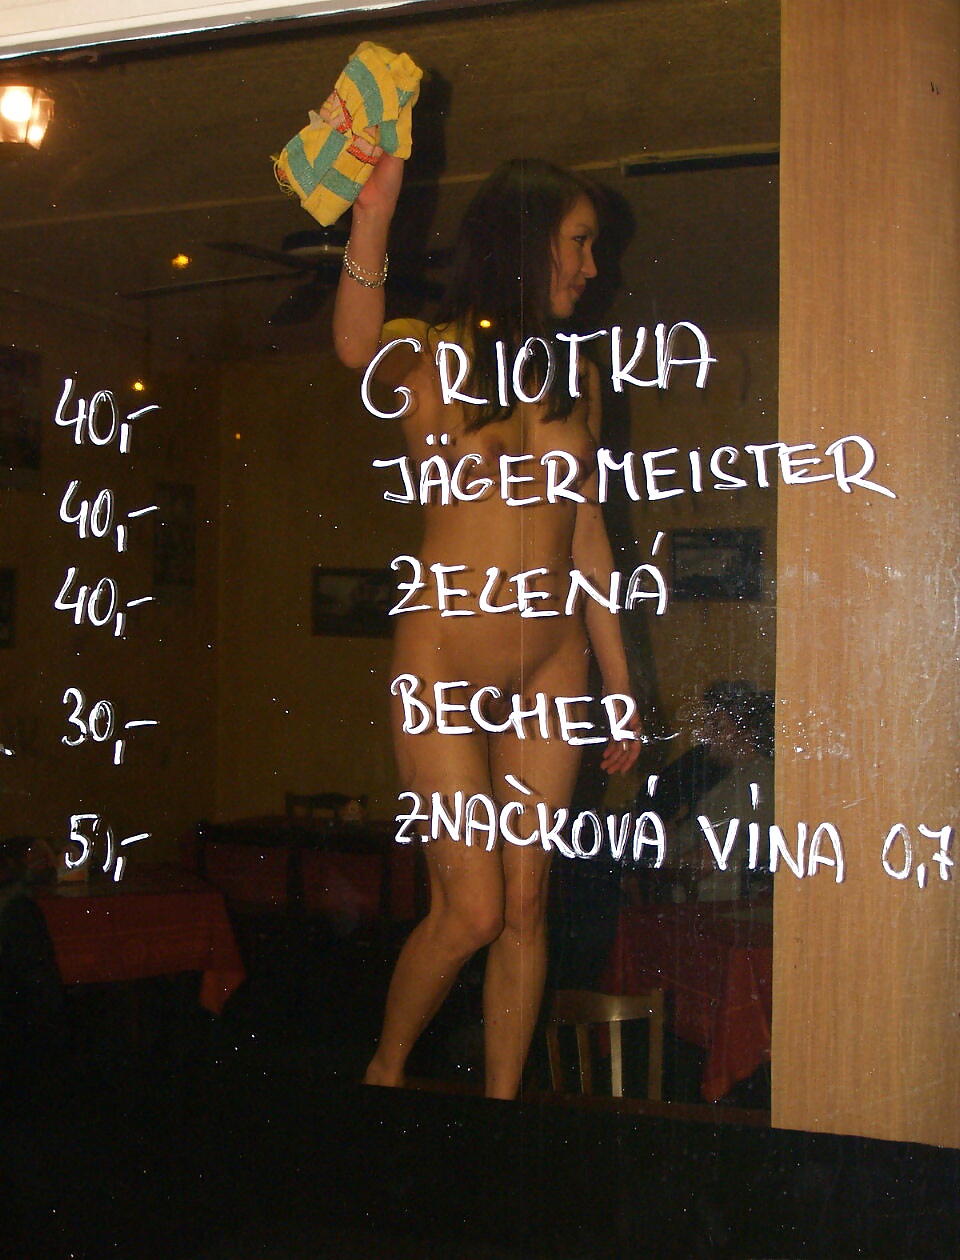 40,- GRIOTKA
40,- JÄGERMEISTER
40,- ZELENÁ
30,- BECHER
50,- ZNAČKOVÁ VÍNA 0,7